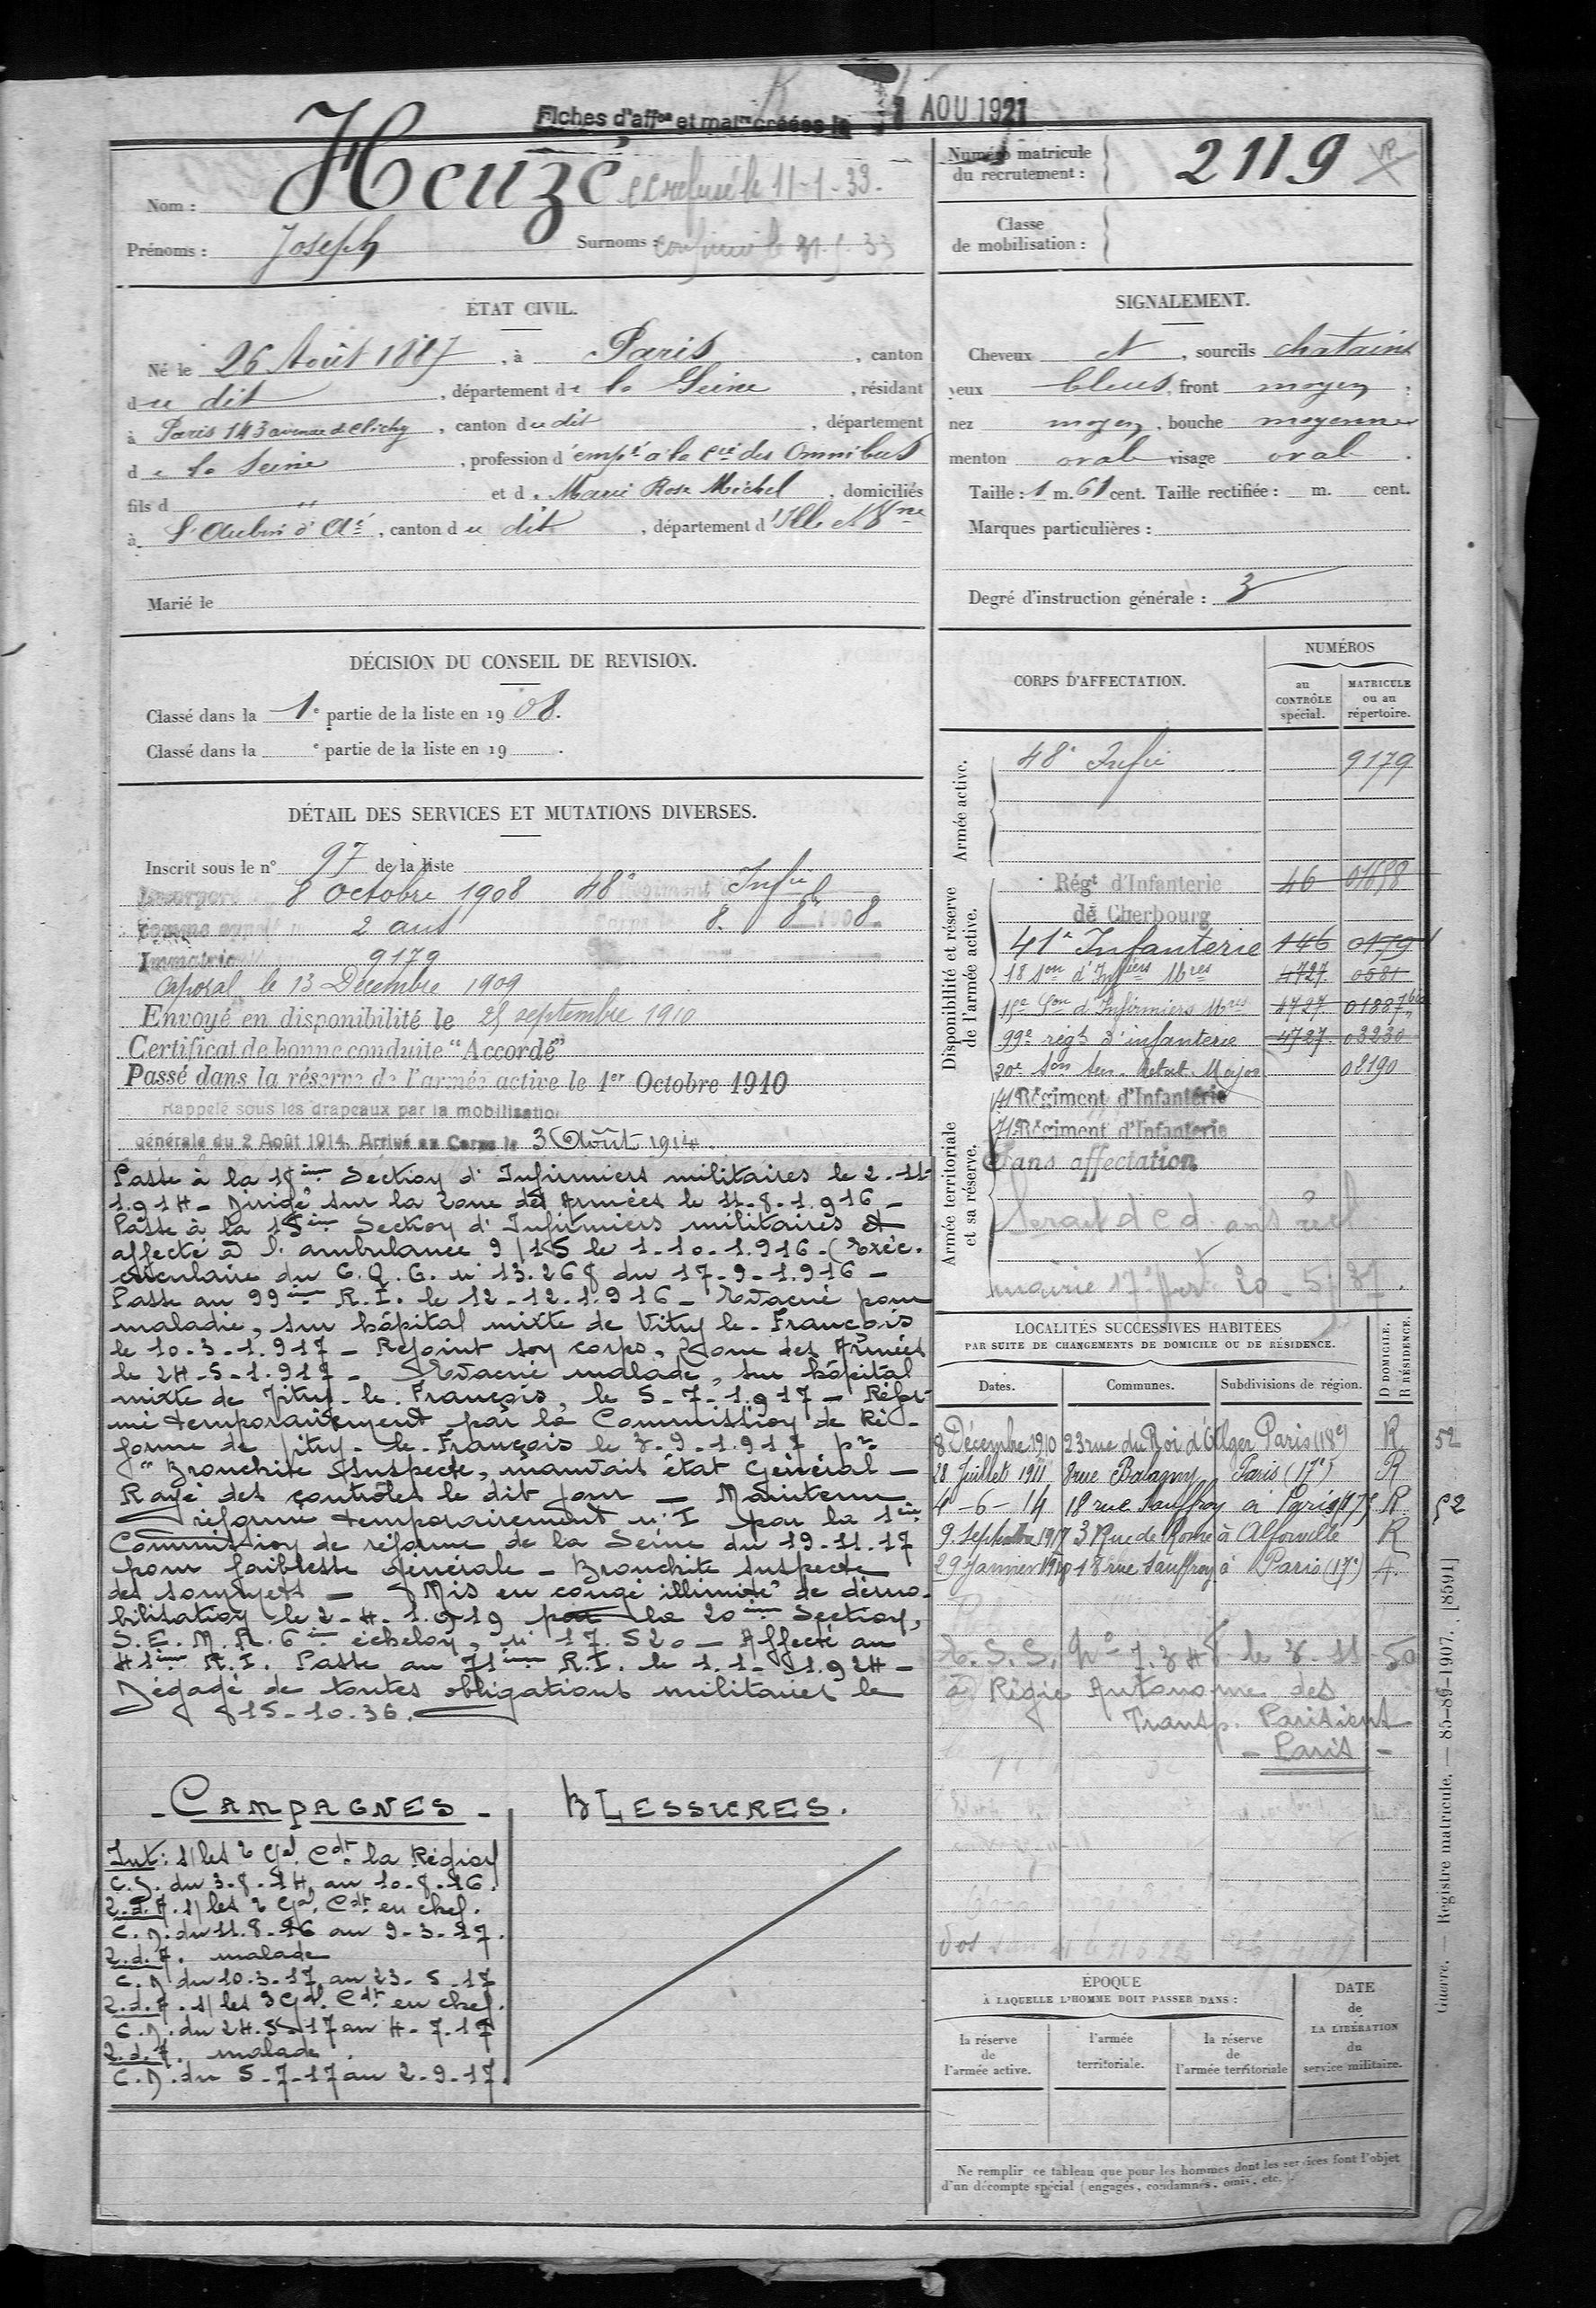 Fiches d'affon et matre créées le 1 AOU 1921
Nom : Heuzé
le 11-1-33.
Prénoms : Joseph Surnoms :
ÉTAT CIVIL.
Né le 26 Août 1887, à Paris, canton
du dit, département de la Seine, résidant
à Paris 143 avenue de Clichy, canton du dit, département
de la Seine, profession d'empé à la Cie des Omnibus
fils d " et d. Marie Rose Michel, domiciliés
à St Aubin d'Aé, canton du dit, département d'Ille et Vne
Marié le
DÉCISION DU CONSEIL DE REVISION.
Classé dans la 1e partie de la liste en 1908.
Classé dans la e partie de la liste en 19 .
DÉTAIL DES SERVICES ET MUTATIONS DIVERSES.
Inscrit sous le n° 97 de la liste
Incorporé 8 octobre 1908 48e Régiment d' Infie
2 ans 8. 8bre 1908.
Immatric 9179
Caporal le 13 Décembre 1909
Envoyé en disponibilité le 25 septembre 1910
Certificat de bonne conduite "Accordé"
Passé dans la réserve de l'armée active le 1er Octobre 1910
Rappelé sous les drapeaux par la mobilisation
générale du 2 Août 1914. Arrivé au Corps le 3 Août 1914.
Passé à la 18ème Section d'Infirmiers militaires le 2-11-
1.914 - Dirigé sur la Zone des Armées le 11-8-1.916 -
Passé à la 15ème Section d'Infirmiers militaires et
affecté à l'ambulance 9/15 le 1-10-1.916 - (Exéc.
circulaire du G.Q.G. n° 13.268 du 17-9-1.916 -
Passé au 99ème R.I. le 12-12-1.916 - Evacué pour
maladie, sur hôpital mixte de Vitry-le-François
le 10-3-1.917 - Rejoint son corps, Zone des Armées
le 24-5-1.917 - Evacué malade, sur hôpital
mixte de Vitry-le-François, le 5-7-1.917 - Réfor-
mé temporairement par la Commission de Ré-
forme de Vitry-le-François le 3-9-1.917 pr
"Bronchite suspecte, mauvais état général -
Rayé des contrôles le dit jour - Maintenu
réformé temporairement n° I par la 1ère
Commission de réforme de la Seine du 19-11-17
pour faiblesse générale - Bronchite suspecte
des sommets - Mis en congé illimité de démo-
bilisation le 2-4-1.919 par la 20ème Section,
S.E.M.R. 6ème échelon, n° 17.520 - Affecté au
41ème R.I. Passé au 71ème R.I. le 1.1.1.924 -
Dégagé de toutes obligations militaires le
15-10-36.
- CAMPAGNES -
Int : s/les 2 Gal Cdt la Région
C.S. du 3-8-14 au 10-8-16.
Z.d.A. s/les 2 Gal Cdt en chef.
C.D. du 11.8-16 au 9-3-17.
Z.d.A. malade
C.D. du 10-3-17 au 23-5-17
Z.d.A. s/les 3 Gal Cdt en chef.
C.D. du 24.5-17 au 4-7-17
Z.d.A. malade.
C.D. du 5-7-17 au 2-9-17.
BLESSURES.
Numéro matricule du recrutement : 2119
Classe de mobilisation :
SIGNALEMENT.
Cheveux et, sourcils chatains
yeux bleus, front moyen ;
nez moyen, bouche moyenne
menton oval visage oval.
Taille : 1 m. 61 cent. Taille rectifiée : m. cent.
Marques particulières :
Degré d'instruction générale : 3
CORPS D'AFFECTATION. NUMÉROS
au CONTRÔLE spécial. MATRICULE ou au répertoire.
Armée active.
48e Infie 9179
Disponibilité et réserve de l'armée active.
Régt d'Infanterie 46 01658
de Cherbourg
41e Infanterie 146 0179
18 Son d'Infiers Mres 4727 0581
15e Son d'Infirmiers Mres 4727 01887bis
99e régt d'infanterie 4727 03230
20e Son Sec. d'état-Major 08190
Armée territoriale et sa réserve.
41 Régiment d'Infanterie
71 Régiment d'Infanterie
Sans affectation
mairie 17e 20-5-37.
LOCALITÉS SUCCESSIVES HABITÉES
PAR SUITE DE CHANGEMENTS DE DOMICILE OU DE RÉSIDENCE.
Dates. Communes. Subdivisions de région. D DOMICILE. R RÉSIDENCE.
8 Décembre 1910 23 rue du Roi d'Alger Paris (18e) R 52
28 Juillet 1911 8 rue Balagny Paris (17e) R
4-6-14 18 rue Sauffroy à Paris 17e R 52
9. Septembre 1917 3 Rue de Rome à Alforville R
29 Janvier 1920 18 rue Sauffroy à Paris (17e) A.
E.S.S. No 7.348 le 3-11-50
à Régie Autonome des
Transp. Parisiens
- Paris -
ÉPOQUE
À LAQUELLE L'HOMME DOIT PASSER DANS :
DATE de LA LIBÉRATION du service militaire.
la réserve de l'armée active. l'armée territoriale. la réserve de l'armée territoriale
Ne remplir ce tableau que pour les hommes dont les services font l'objet
d'un décompte spécial (engagés, condamnés, omis, etc.).
Guerre. — Registre matricule. — 85-89-1907. [8591]